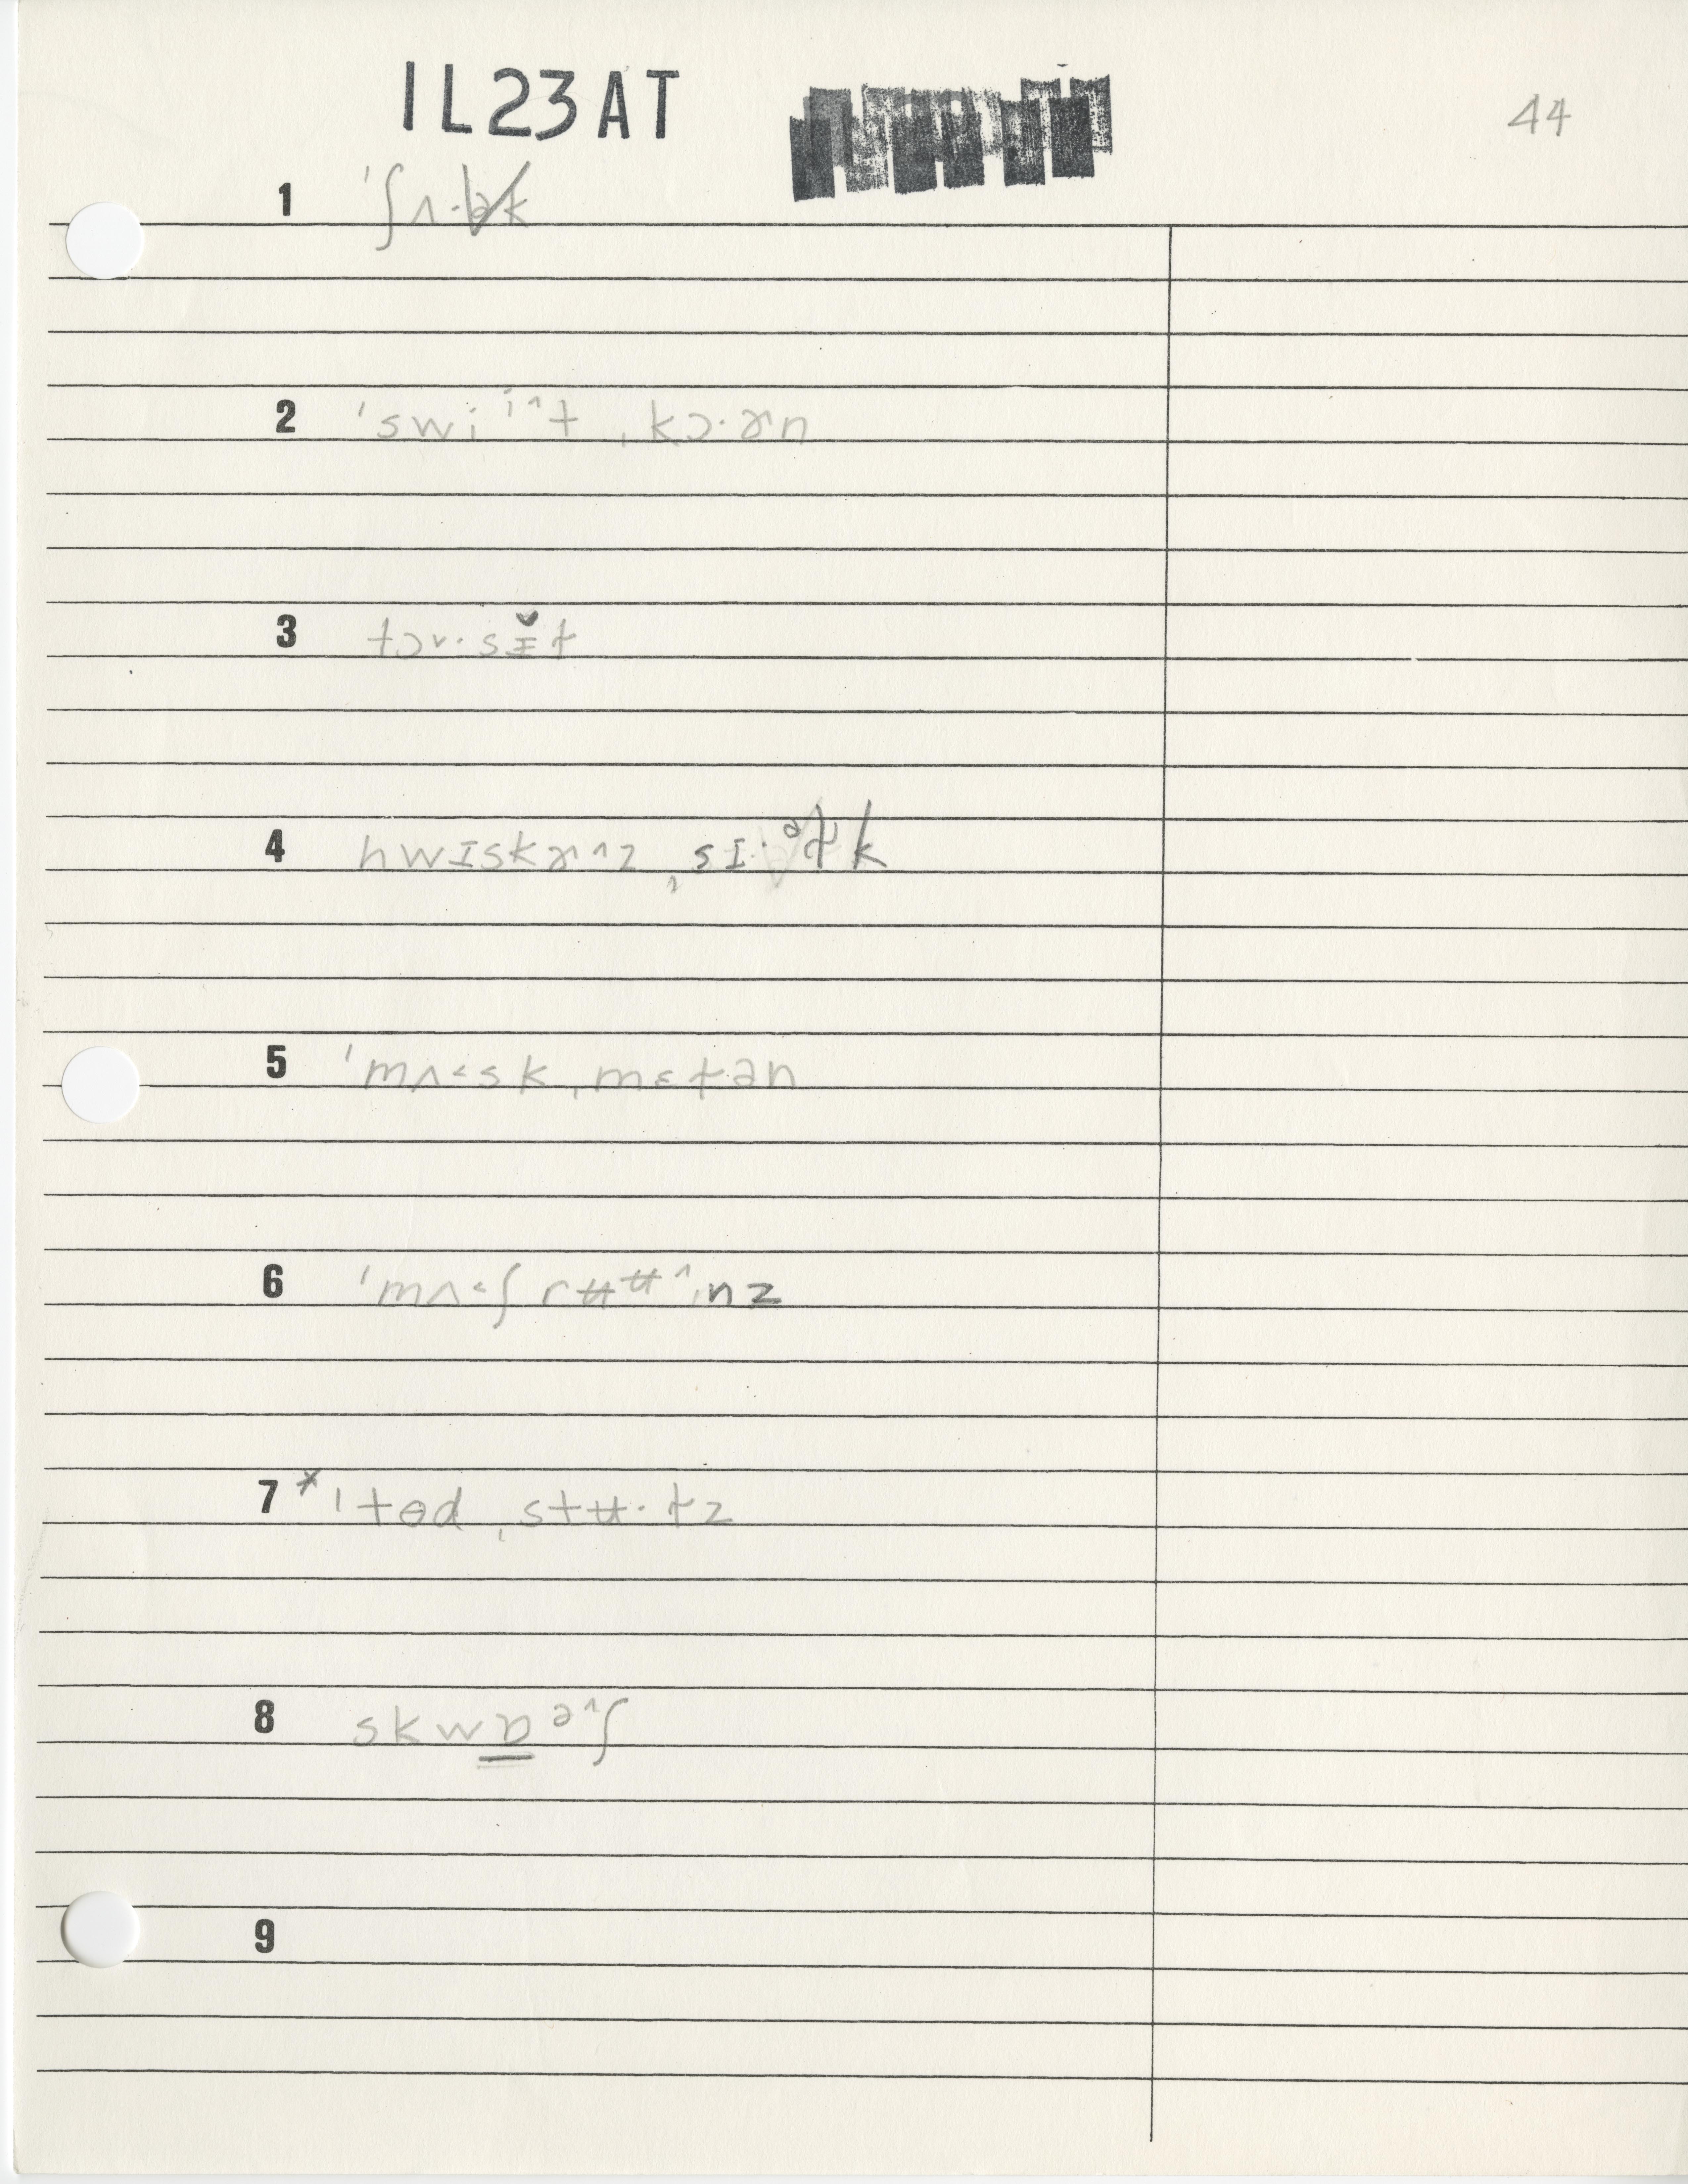 1L23AT
44
1 ˈʃʌ·
2 ˈswiⁱ^t ˌkɔ·ɚn
3 tɔ˅·sɪ̵̆t
4 hwɪskɚ^z ˌsɪ·ᵊɫk
5 ˈmʌ˂sk ˌmɛɫən
6 ˈmʌ˂ʃrʉᶶ^nz
7 *ˈtɵd ˌstʉ·ɫz
8 skwɒᵊ^ʃ
9